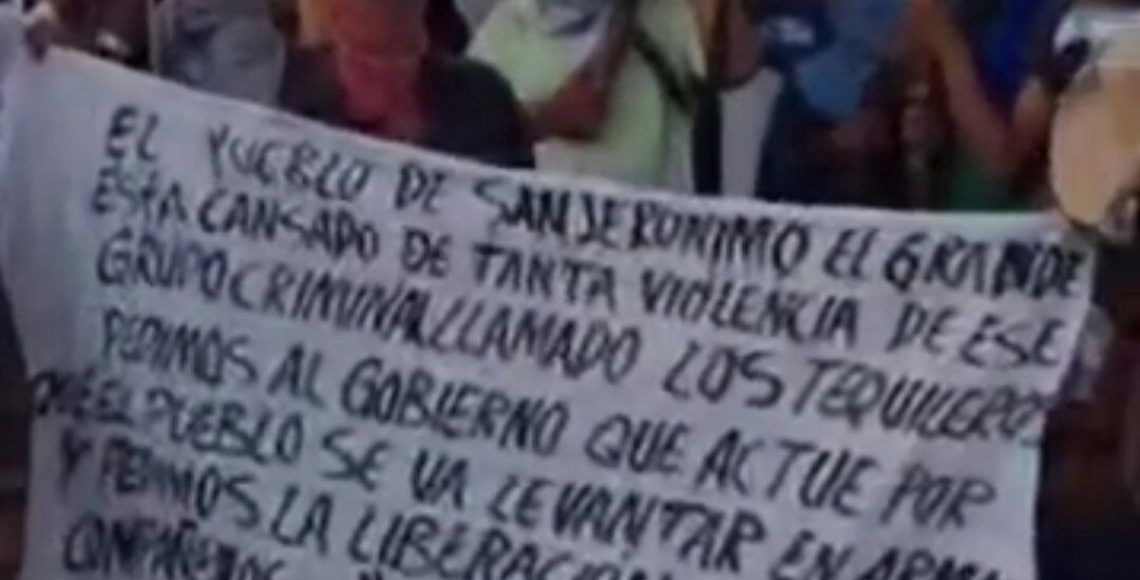 EL PUEBLO DE SAN JERONIMO EL GRANDE
ESTA CANSADO DE TANTA VIOLENCIA DE ESE
GRUPO CRIMINAL LLAMADO LOS TEQUILEROS
PEDIMOS AL GOBIERNO QUE ACTUE POR
QUE EL PUEBLO SE VA LEVANTAR EN
Y PEDIMOS LA LIBERACION